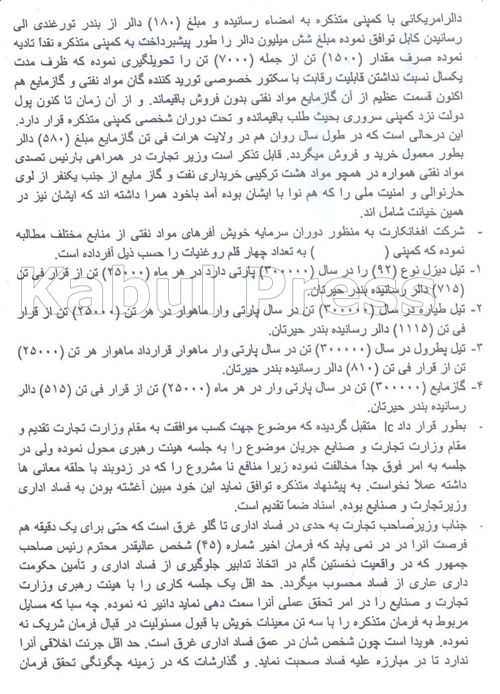 دالرامریکائی با کمپنی متذکره به امضاء رسانیده و مبلغ (۱۸۰) دالر از بندر تورغندی الی
رسانیدن کابل توافق نموده مبلغ شش میلیون دالر را طور پیشبرداخت به کمپنی متذکره نقداً تادیه
نموده صرف مقدار (۱۵۰۰) تن از جمله (۷۰۰۰) تن را تحویلگیری نموده که ظرف مدت
یکسال نسبت نداشتن قابلیت رقابت با سکتور خصوصی تورید کننده گان مواد نفتی و گازمایع هم
اکنون قسمت عظیم از آن گازمایع مواد نفتی بدون فروش باقیماند. و از آن زمان تا کنون پول
دولت نزد کمپنی سروری بحیث طلب باقیمانده و تحت دوران شخصی کمپنی متذکره قرار دارد.
این درحالی است که در طول سال روان هم در ولایت هرات فی تن گازمایع مبلغ (۵۸۰) دالر
بطور معمول خرید و فروش میگردد. قابل تذکر است وزیر تجارت در همراهی بارئیس تصدی
مواد نفتی همواره در همچو مواد هشت ترکیبی خریداری نفت و گاز مایع از جنب یکنفر از لوی
حارنوالی و امنیت ملی را که هم نوا با ایشان بوده آمد باخود همرا داشته اند که ایشان نیز در
همین خیانت شامل اند.
- شرکت افغانکارت به منظور دوران سرمایه خویش آفرهای مواد نفتی از منابع مختلف مطالبه
نموده که کمپنی ( ) به تعداد چهار قلم روغنیات را حسب ذیل آفرداده است.
۱- تیل دیزل نوع (۹۲) را در سال (۳۰۰۰۰۰) پارتی دارد در هر ماه (۲۵۰۰۰) تن از قرار فی تن
(۷۱۵) دالر رسانیده بندر حیرتان.
۲- تیل طیاره در سال (۳۰۰۰۰۰) تن در سال پارتی وار ماهوار در هر تن (۲۵۰۰۰) تن از قرار
فی تن (۱۱۱۵) دالر رسانیده بندر حیرتان.
۳- تیل پطرول در سال (۳۰۰۰۰۰) تن در سال پارتی وار ماهوار قرارداد ماهوار هر تن (۲۵۰۰۰)
تن از قرار فی تن (۸۱۰) دالر رسانیده بندر حیرتان.
۴- گازمایع (۳۰۰۰۰۰) تن در سال پارتی وار در هر ماه (۲۵۰۰۰) تن از قرار فی تن (۵۱۵) دالر
رسانیده بندر حیرتان.
- بطور قرار داد lc متقبل گردیده که موضوع جهت کسب موافقت به مقام وزارت تجارت تقدیم و
مقام وزارت تجارت و صنایع جریان موضوع را به جلسه هیئت رهبری محول نموده ولی در
جلسه به امر فوق جداً مخالفت نموده زیرا منافع نا مشروع را که در زدوبند با حلقه معانی ها
داشته عملاً نخواست. به پیشنهاد متذکره توافق نماید این خود مبین آغشته بودن به فساد اداری
وزیرتجارت و صنایع بوده. اسناد ضماً تقدیم است.
. جناب وزیرصاحب تجارت به حدی در فساد اداری تا گلو غرق است که حتی برای یک دقیقه هم
فرصت انرا در در نمی یابد که فرمان اخیر شماره (۴۵) شخص عالیقدر محترم رئیس صاحب
جمهور که در واقعیت نخستین گام در اتخاذ تدابیر جلوگیری از فساد اداری و تأمین حکومت
داری عاری از فساد محسوب میگردد. حد اقل یک جلسه کاری را با هیئت رهبری وزارت
تجارت و صنایع را در امر تحقق عملی آنرا سمت دهی نماید دائیر نه نموده. چه سبا که مسایل
مربوط به فرمان متذکره را با سه تن معینات خویش با قبول مسئولیت در قبال فرمان شریک نه
نموده. هویدا است چون شخص شان در عمق فساد اداری غرق است. حد اقل جرئت اخلاقی آنرا
ندارد تا در مبارزه علیه فساد صحبت نماید. و گذارشات که در زمینه چگونگی تحقق فرمان
Kabul Press